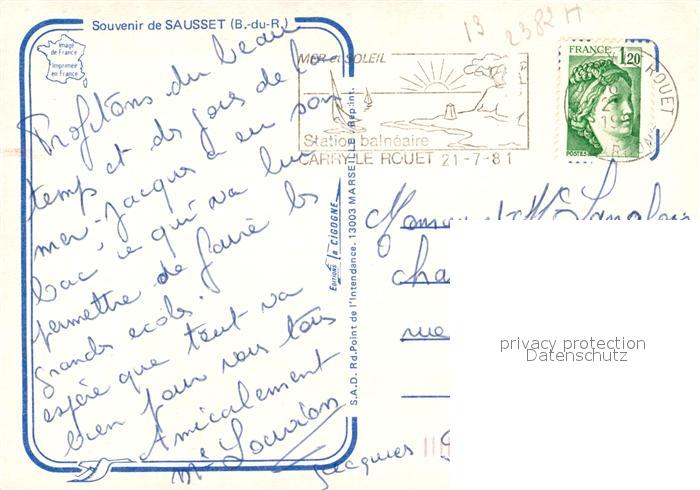 Souvenir de SAUSSET (B.-du-R.)
Image
de France
Imprimée
en France
13
2382 H
MER et SOLEIL
Station balnéaire
CARRY LE ROUET 21-7-81
FRANCE
1,20
POSTES
ROUET
Profitons du beau
temps et des joies de la
mer. Jacques a eu son
bac, ce qui va lui
permettre de faire les
grandes écoles. J'
espère que tout va
bien pour vous tous
Amicalement
Jacques
Editions la CIGOGNE
S.A.D. Rd.Point de l'Intendance. 13003 MARSEILLE - Rep.int.
Monsieur et Me Langlois
cha
rue
privacy protection
Datenschutz